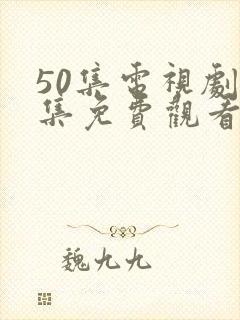 50集電視劇
集免費觀看
魏九九